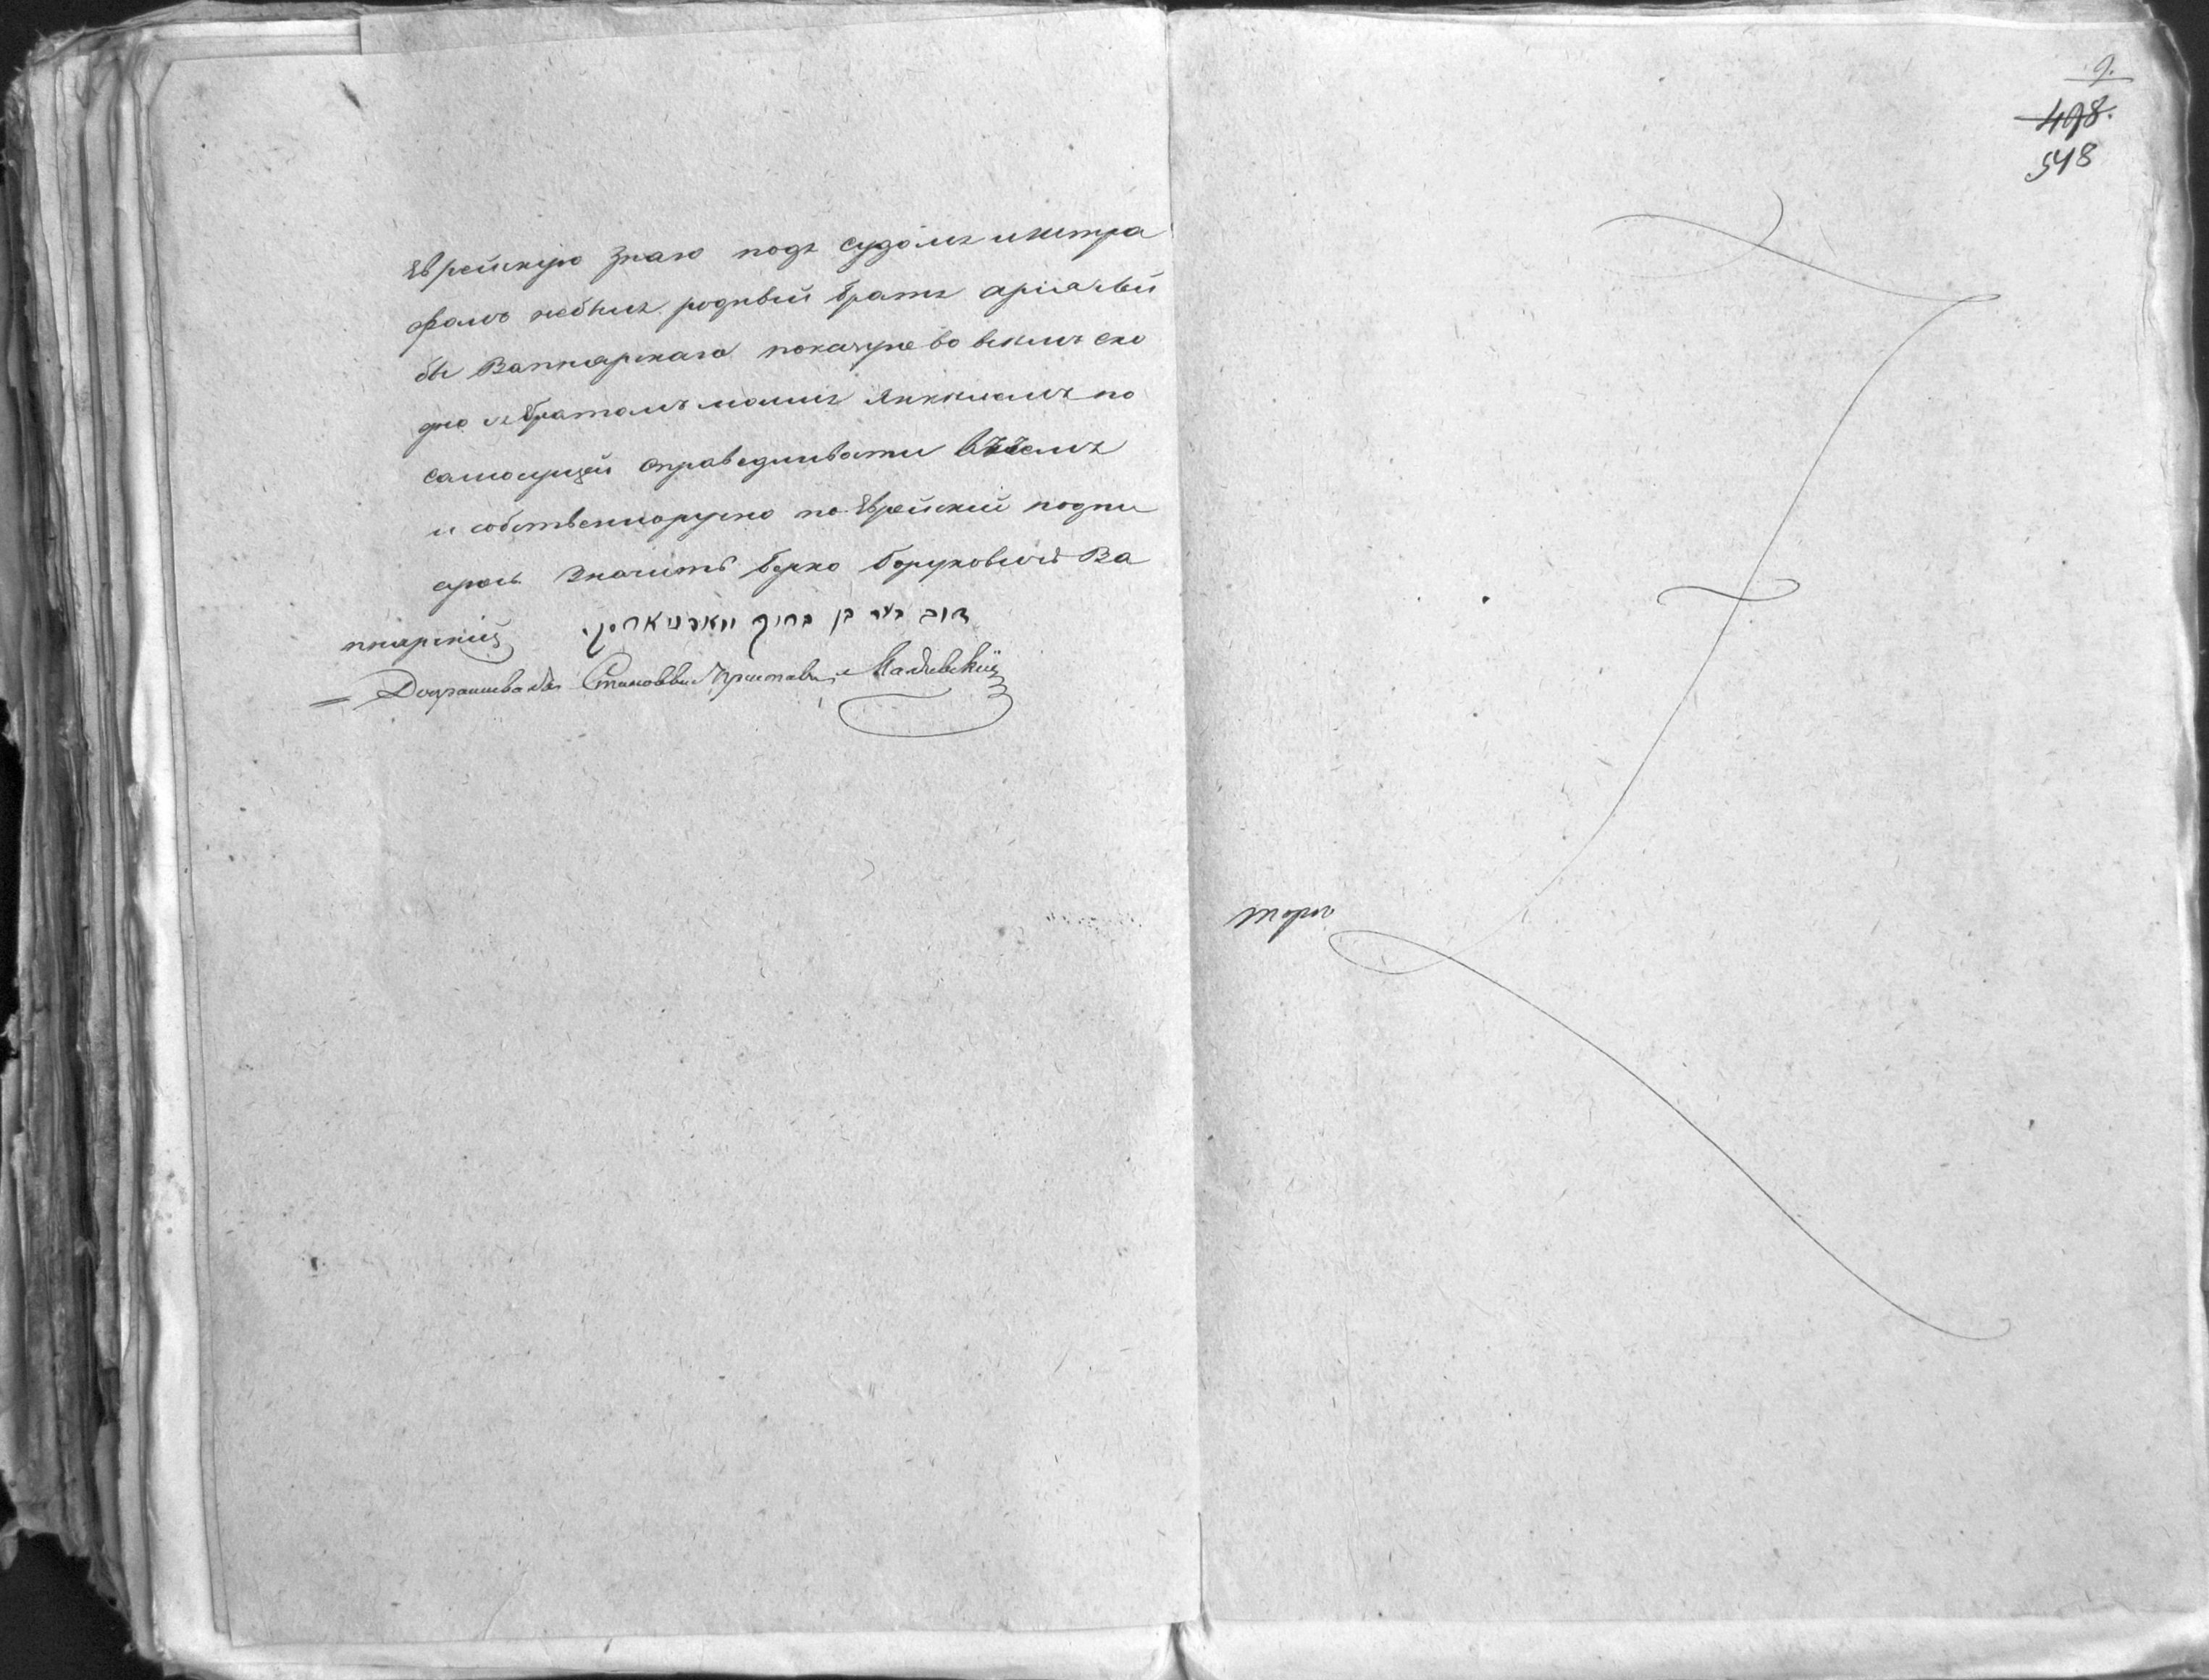 Еврейскую знаю подъ судомъ и штра
фомъ небылъ родный братъ
бы Вапнярскаго показую во всемъ схо
дно съ братомъ моимъ Янкелемъ по
самой сущей справедливости
и собственноручно по Еврейски подпи
суюсь значитъ Берко Боруховичъ Ва
пнярский דוב בער בן ברוך וואפניארסקי
Допрашивалъ Становый Приставъ
9.
498.
548